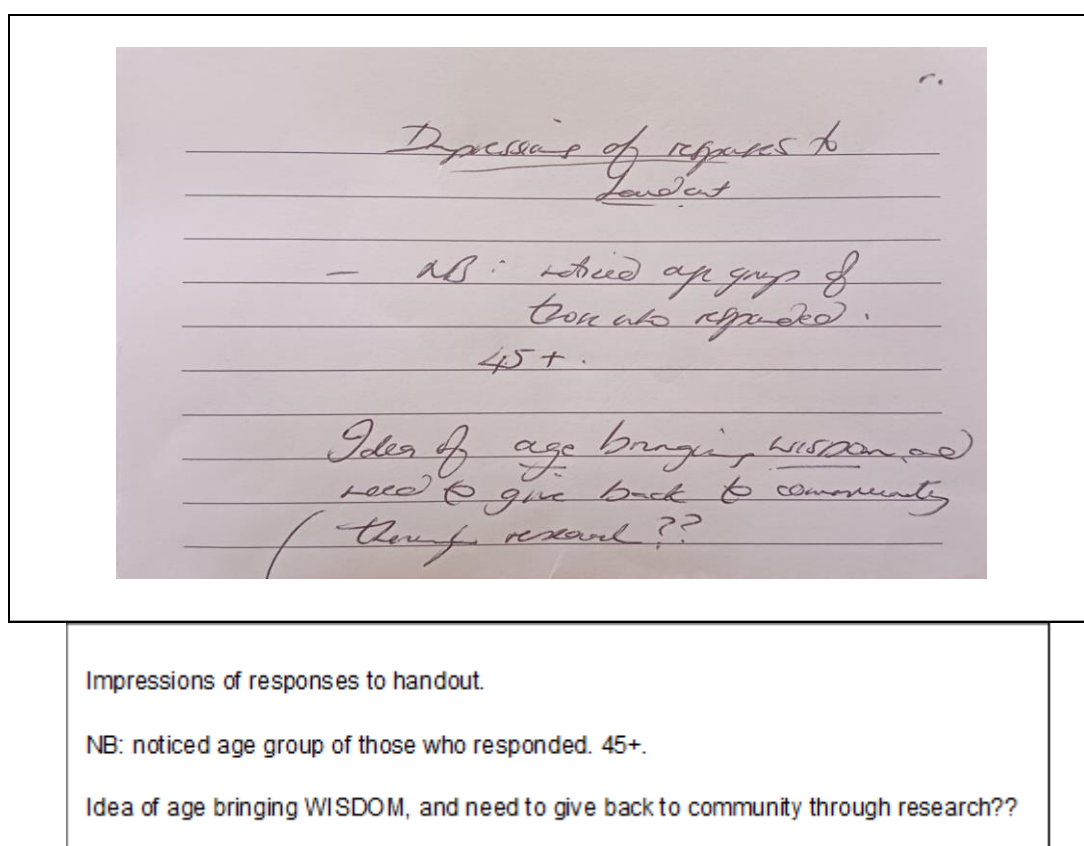 Impressions of responses to
handout
– NB: noticed age group of
those who responded.
45+.
Idea of age bringing WISDOM, and
need to give back to community
through research??
Impressions of responses to handout.
NB: noticed age group of those who responded. 45+.
Idea of age bringing WISDOM, and need to give back to community through research??